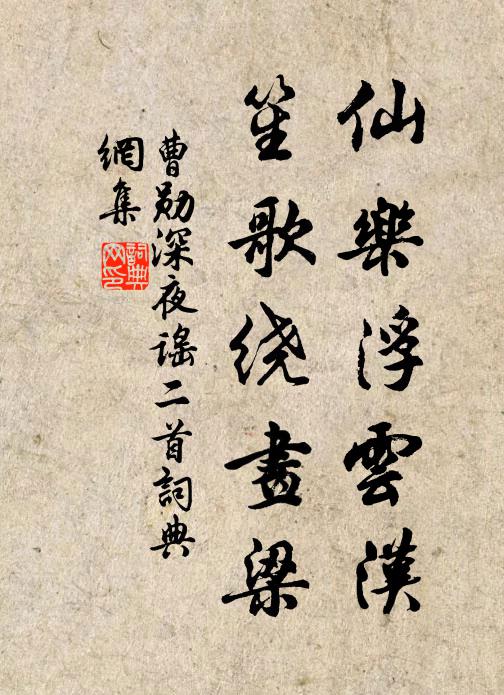 仙樂浮雲漢
笙歌绕畫梁
曹勛深夜謠二首詞典
網集
詞典
网印